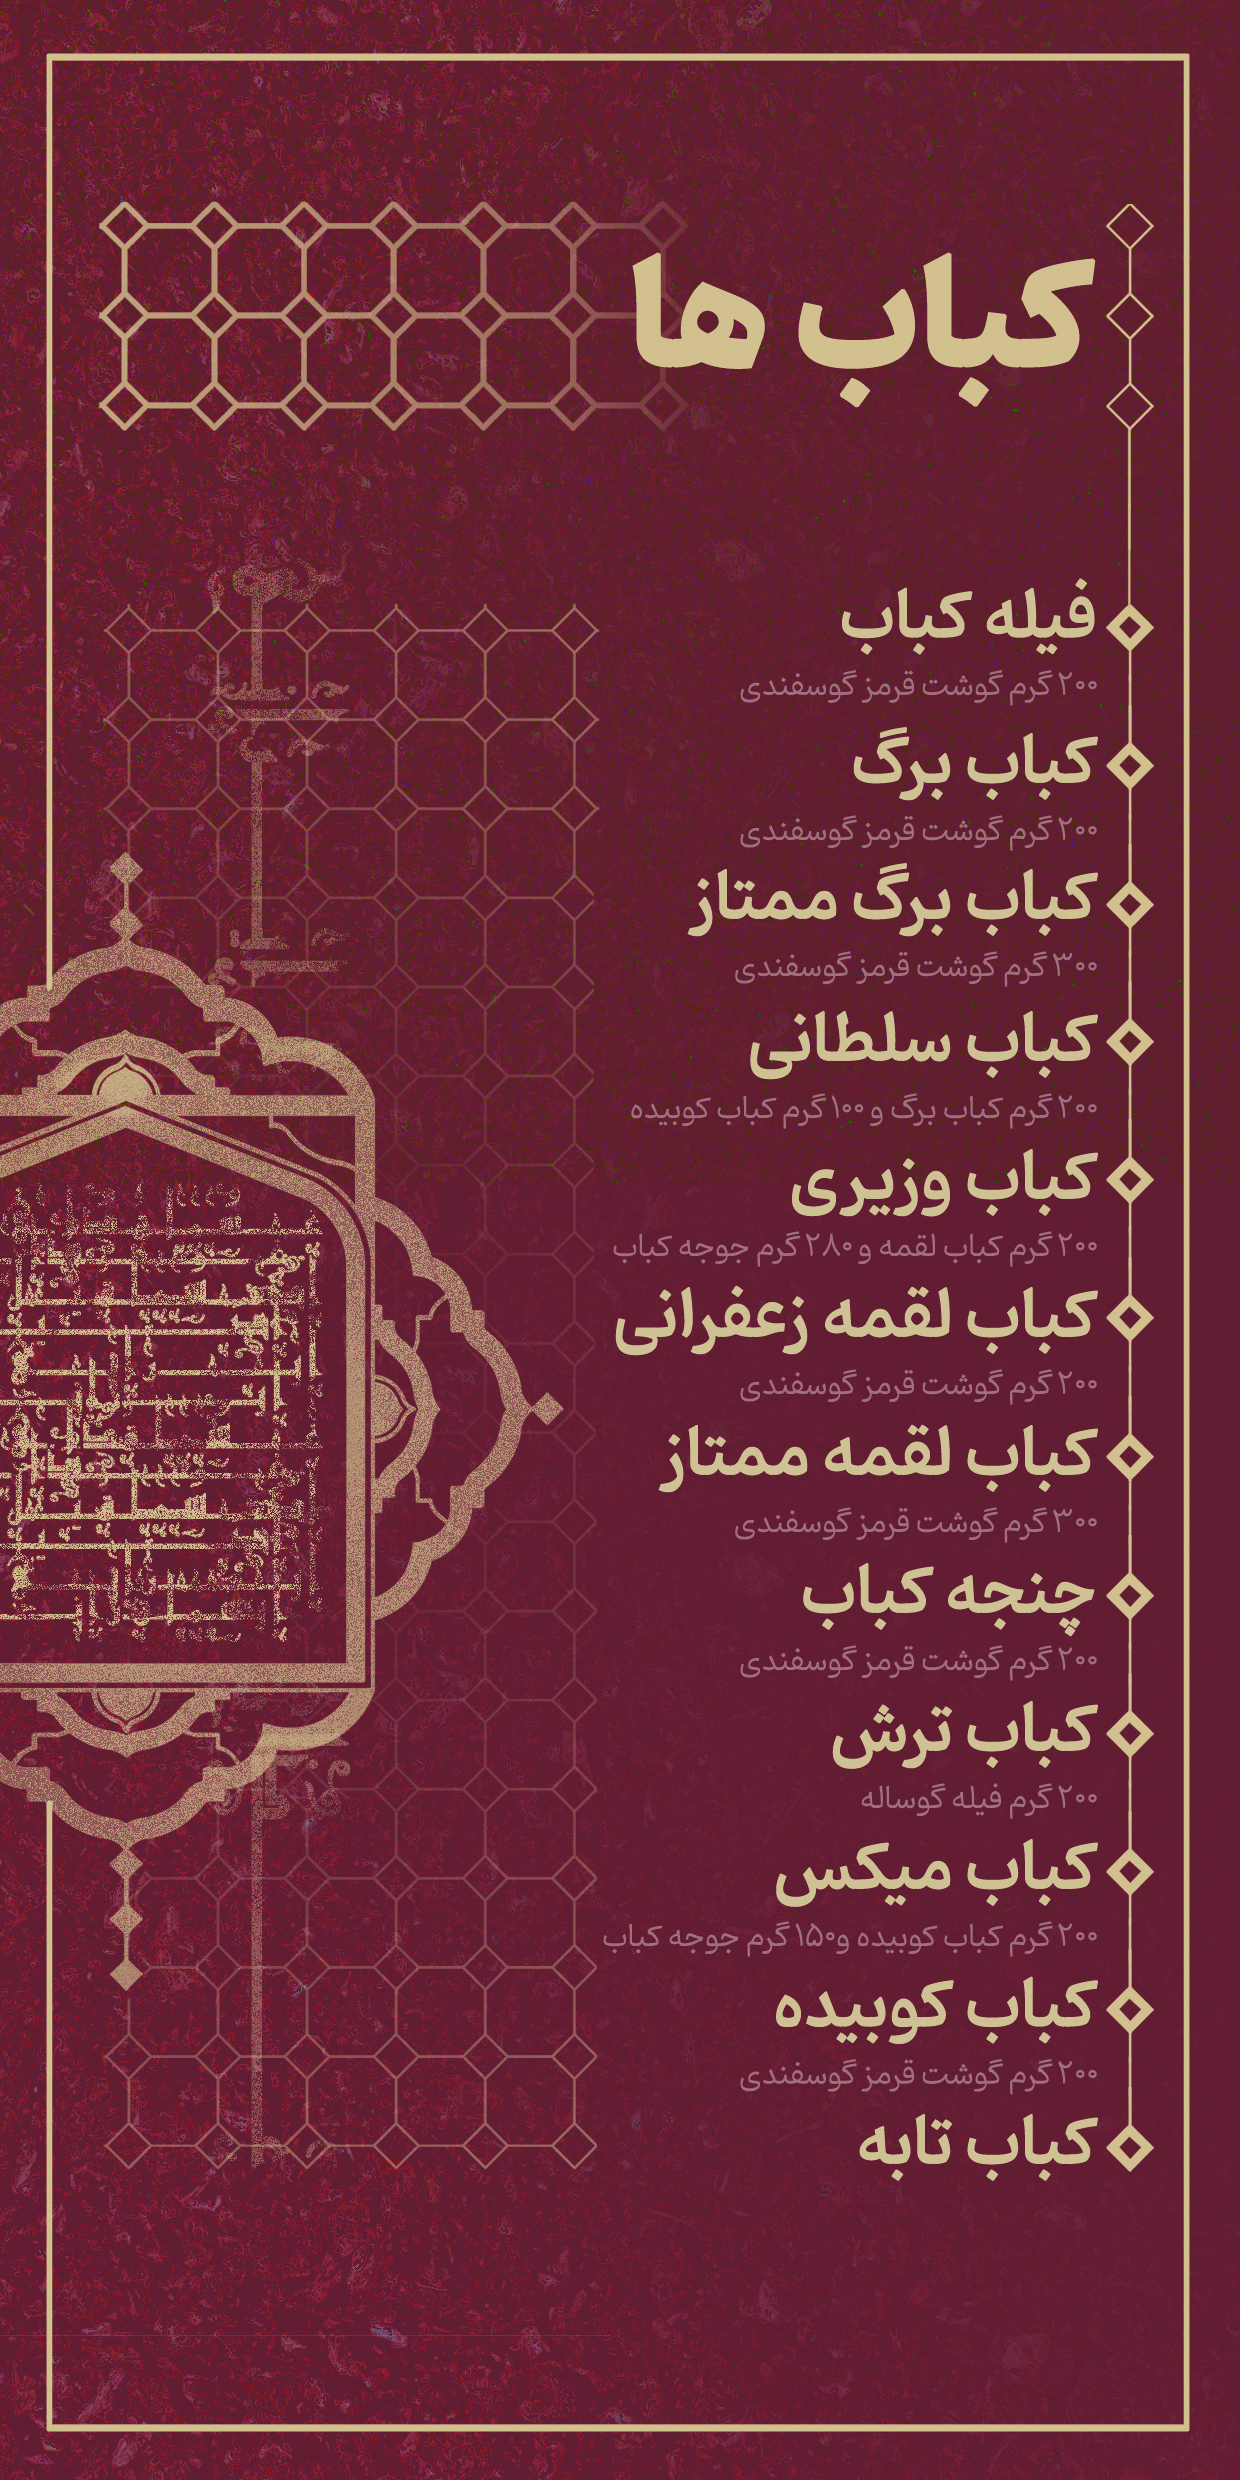 کباب ها
فیله کباب
۲۰۰ گرم گوشت قرمز گوسفندی
کباب برگ
۲۰۰ گرم گوشت قرمز گوسفندی
کباب برگ ممتاز
۳۰۰ گرم گوشت قرمز گوسفندی
کباب سلطانی
۲۰۰ گرم کباب برگ و ۱۰۰ گرم کباب کوبیده
کباب وزیری
۲۰۰ گرم کباب لقمه و ۲۸۰ گرم جوجه کباب
کباب لقمه زعفرانی
۲۰۰ گرم گوشت قرمز گوسفندی
کباب لقمه ممتاز
۳۰۰ گرم گوشت قرمز گوسفندی
چنجه کباب
۲۰۰ گرم گوشت قرمز گوسفندی
کباب ترش
۲۰۰ گرم فیله گوساله
کباب میکس
۲۰۰ گرم کباب کوبیده و۱۵۰ گرم جوجه کباب
کباب کوبیده
۲۰۰ گرم گوشت قرمز گوسفندی
کباب تابه